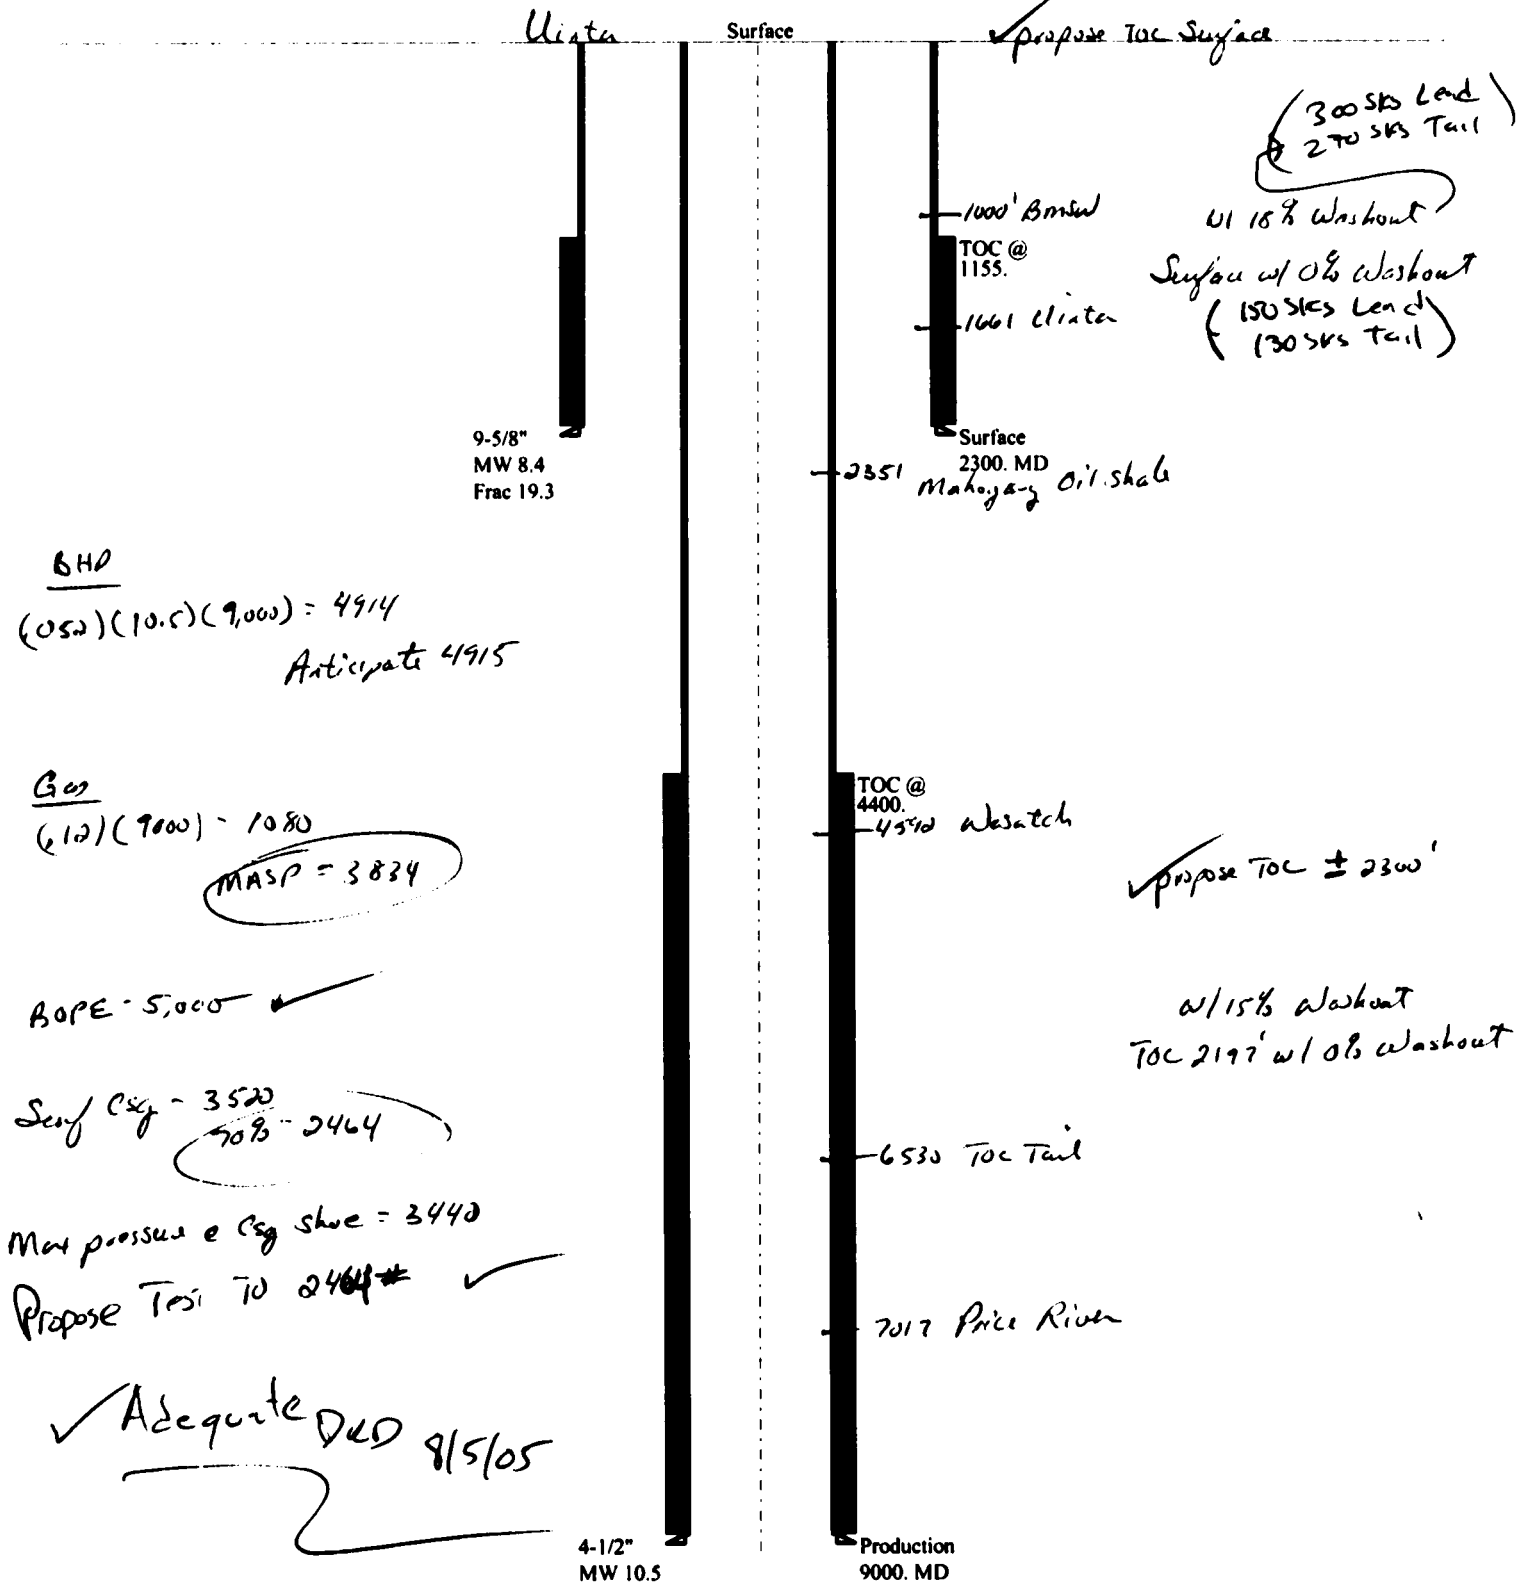 Uinta
Surface
✓propose TOC Surface
(300 sks Lead)
270 sks Tail
1000' BMSW
w/ 18% Washout
TOC @
1155.
Surface w/ 0% Washout
(150 sks Lead)
130 sks Tail
1661 Uinta
9-5/8"
MW 8.4
Frac 19.3
Surface
2300. MD
2351 Mahogany Oil Shale
BHP
(.052)(10.5)(9,000) = 4914
Anticipate 4915
Gas
(.12)(9000) = 1080
MASP = 3834
TOC @
4400.
Wasatch
✓propose TOC ± 2300'
BOPE - 5,000 ✓
w/ 15% Washout
TOC 2197' w/ 0% Washout
Surf Csg - 3520
70% - 2464
6530 TOC Tail
Max pressure @ Csg shoe = 3440
Propose Test To 2464# ✓
7017 Price River
✓ Adequate DKD 8/5/05
4-1/2"
MW 10.5
Production
9000. MD